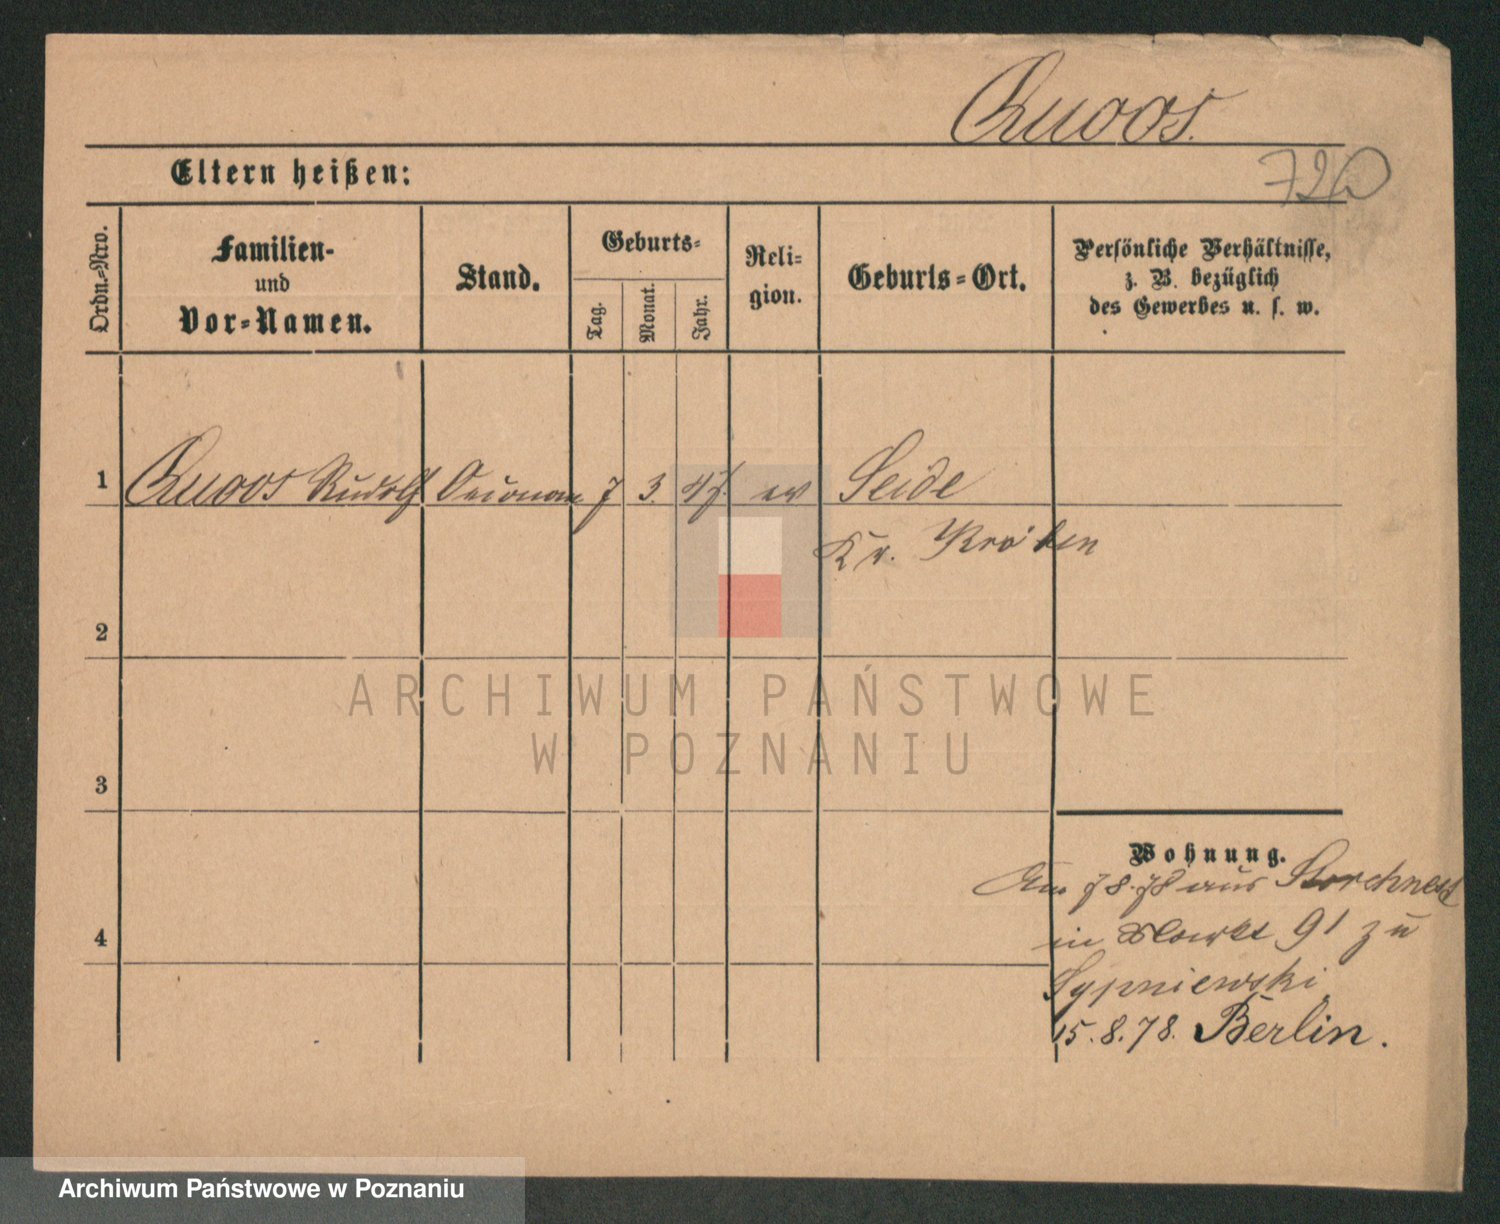 Quoos.
720
Eltern heißen:
Ordn.-Nro.
Familien-
und
Vor-Namen.
Stand.
Geburts-
Tag.
Monat.
Jahr.
Reli-
gion.
Geburts-Ort.
Persönliche Verhältnisse,
z. B. bezüglich
des Gewerbes u. s. w.
1 Quoos Rudolf Oeconom 7 3. 47. ev Seide
Kr. Kröben
2
ARCHIWUM PAŃSTWOWE
W POZNANIU
3
Wohnung.
Am 7 8. 78 aus Storchnest
4
in Markt 91 zu
Sypniewski
15.8.78. Berlin.
Archiwum Państwowe w Poznaniu